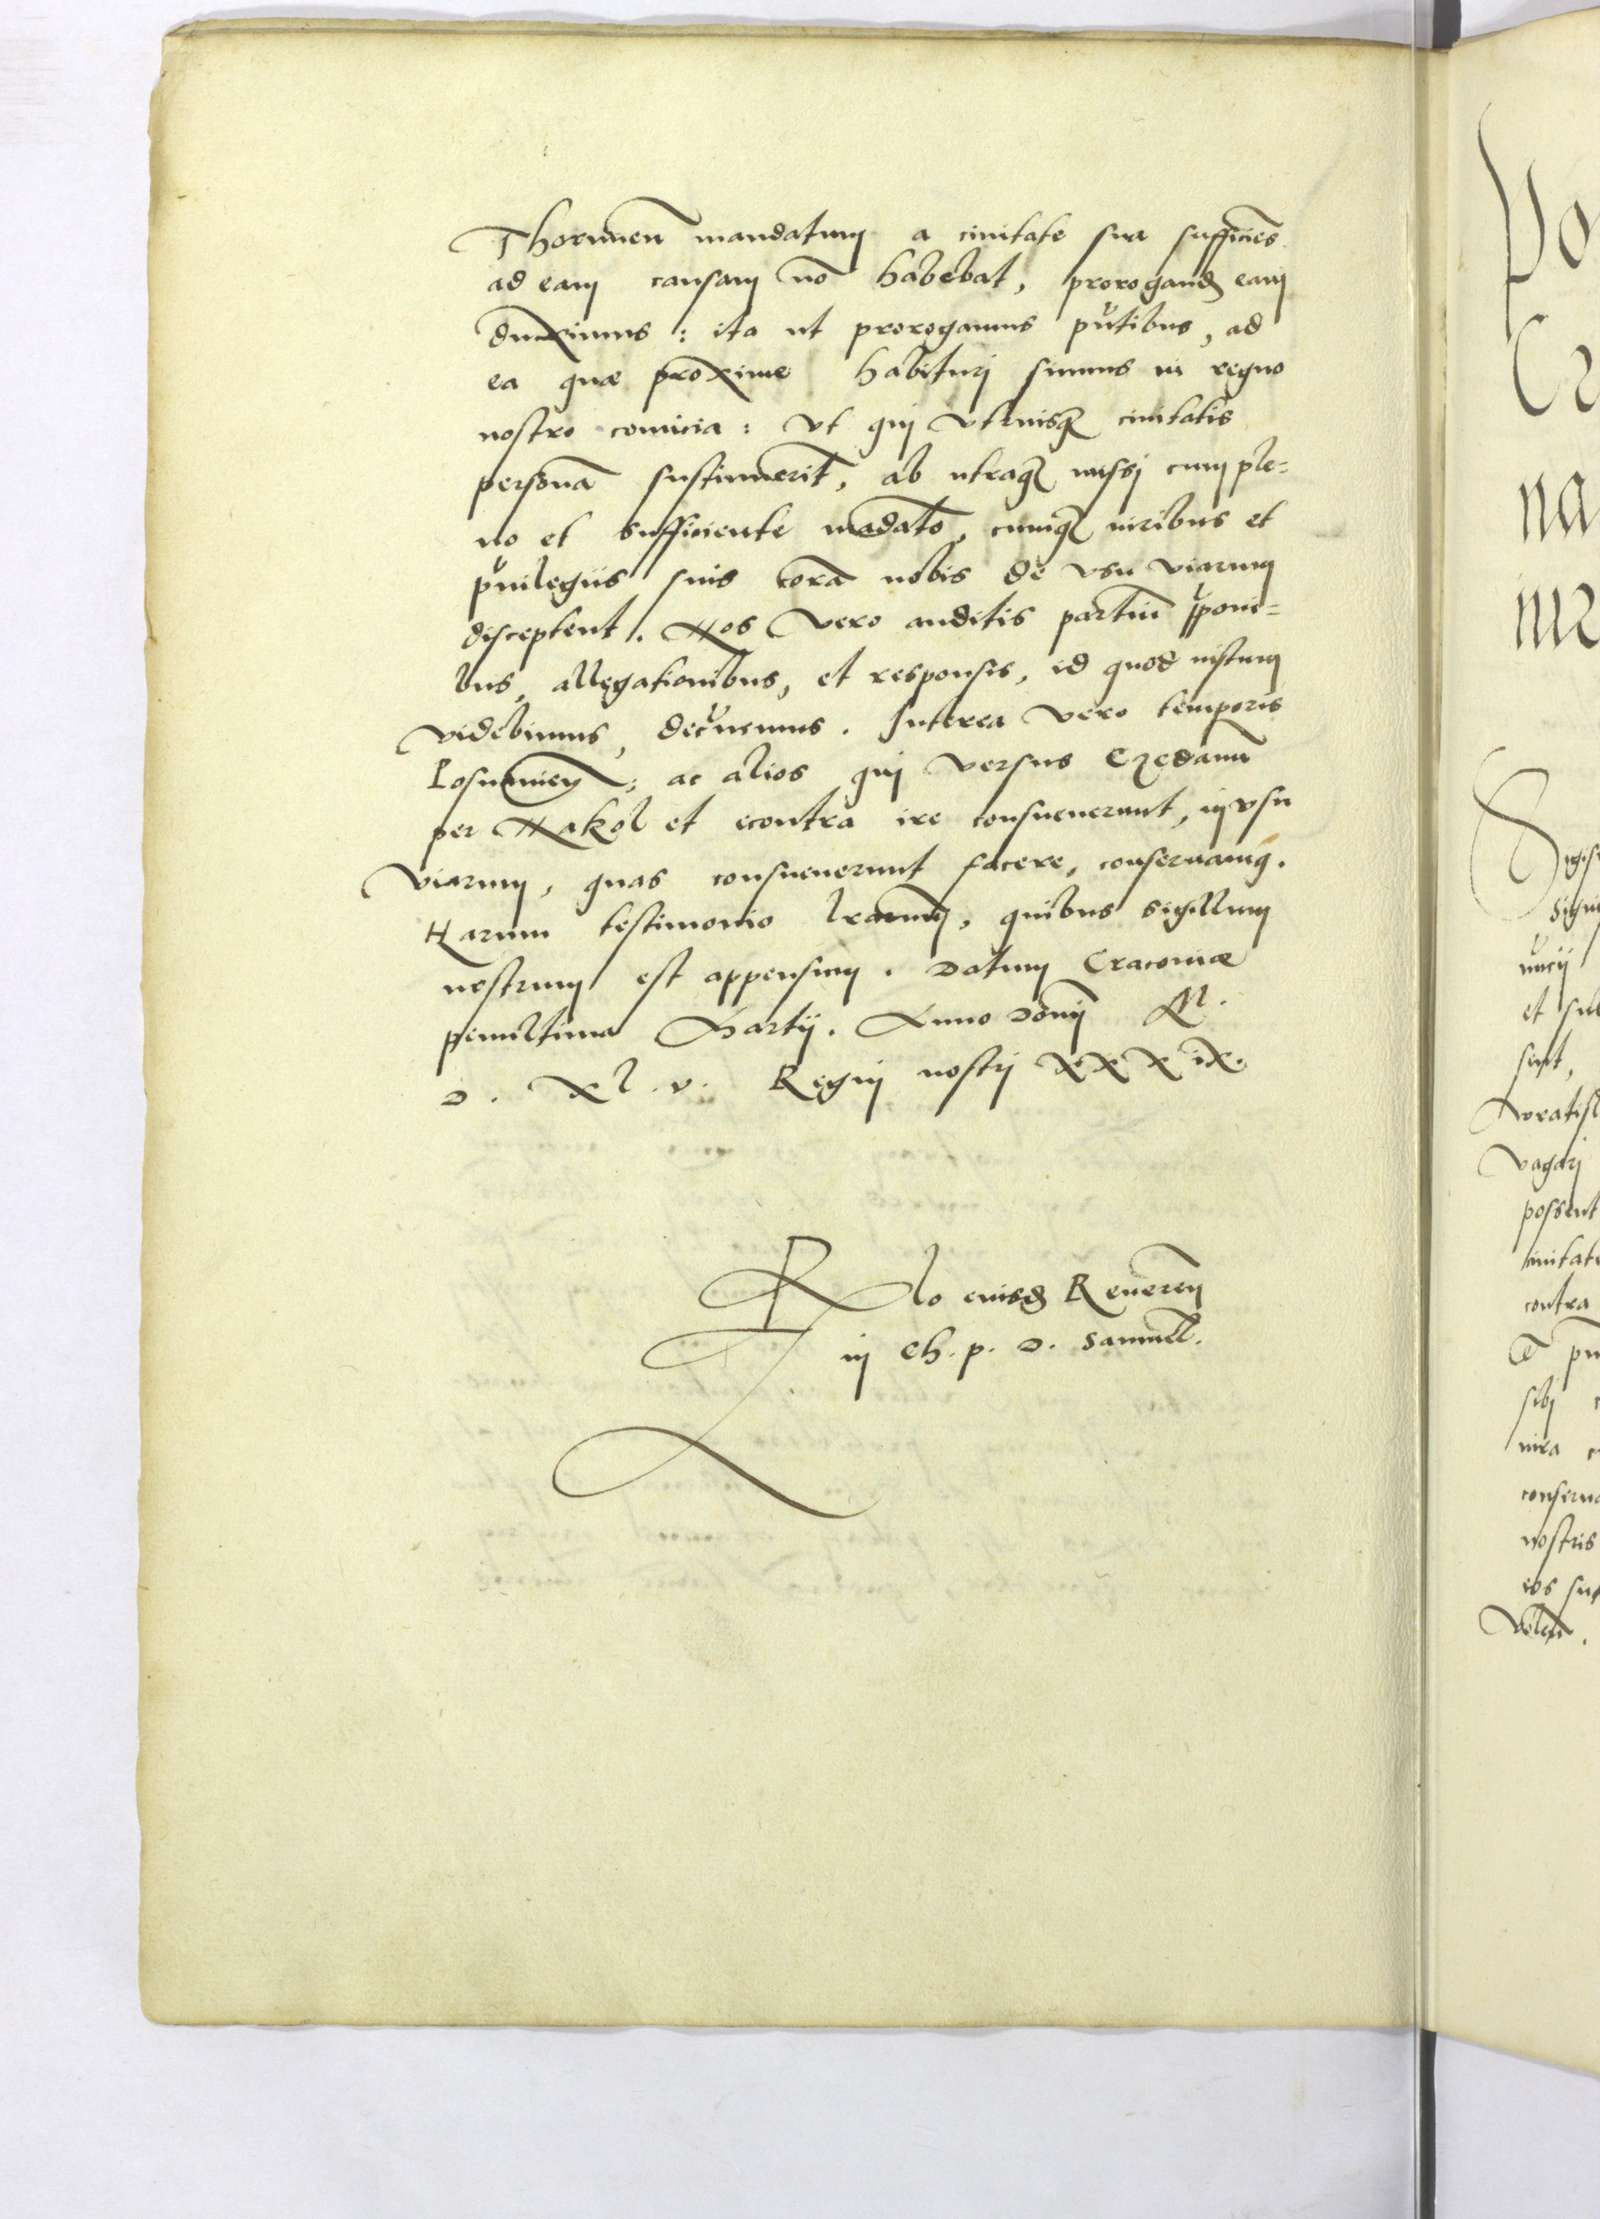 Thorunen̄ mandatum a ciuitate sua sufficiēs
ad eam causam nō habebat, prorogand eam
duximus: ita ut prorogamus pn̄tibus, ad
ea quæ proxime habituri sumus in regno
nostro comicia: Vt qui vtriusq̧ ciuitatis
personā sustinuerit, ab utraq̧ missi cum ple-
no et sufficiente mādato, cumq̧ iuribus et
puilegiis suis corā nobis de vsu viarum
disceptent. Nos vero auditis partiū
bus, allegationibus, et responsis, id quod iustum
videbimus, decernemus. Interea vero temporis
Posnanien̄, ac alios qui versus Gedanū
per Nakel et econtra ire consueuerunt, in vsu
viarum, quas consueuerunt facere, conseruamus.
Harum testimonio lrarum, quibus sigillum
nostrum est appensum. Datum Cracouiæ
penultima Martij. Anno Domī M.
D. Xl.v. Regni nostri XXXIX.
Rlo eiusd Reueren̄
in Ch. p. D. Samuel.
Po
Cr
na
Sigis
signi
et sub
sint,
wratisl
vagari
possent
ciuitat
contra
sibi
conserua
nostris
eos